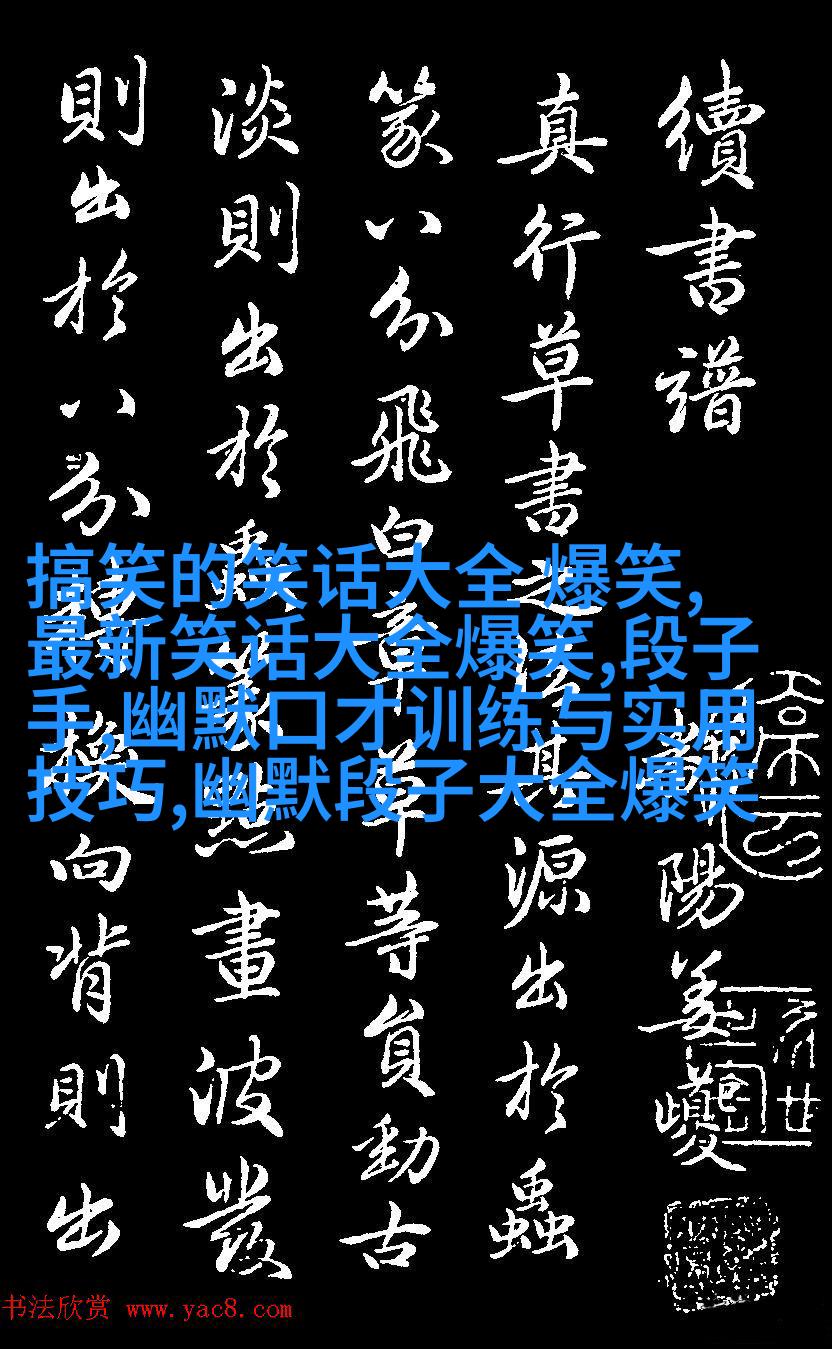 續書譜
陽姜夔
真行草書之法其源出於蟲
篆八分飛白章草草等員勁古
淡則出於蟲篆點畫波發
則出於八分轉換向背則出
搞笑的笑话大全 爆笑,
最新笑话大全爆笑,段子
手,幽默口才训练与实用
技巧,幽默段子大全爆笑
书法欣赏 www.yac8.com